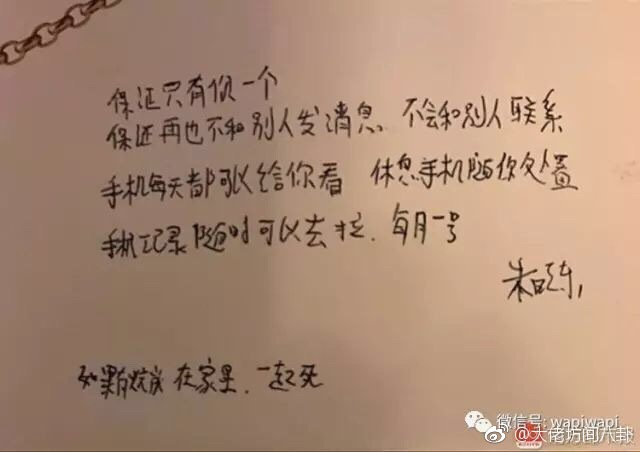 保证只有你一个
保证再也不和别人发消息 不会和别人联系
手机每天都可以给你看 休息手机随你处置
手机记录随时可以去拉、每月一号
朱晓东
如果 在家里、一起死
微信号: wapiwapi
@大佬坊间八報